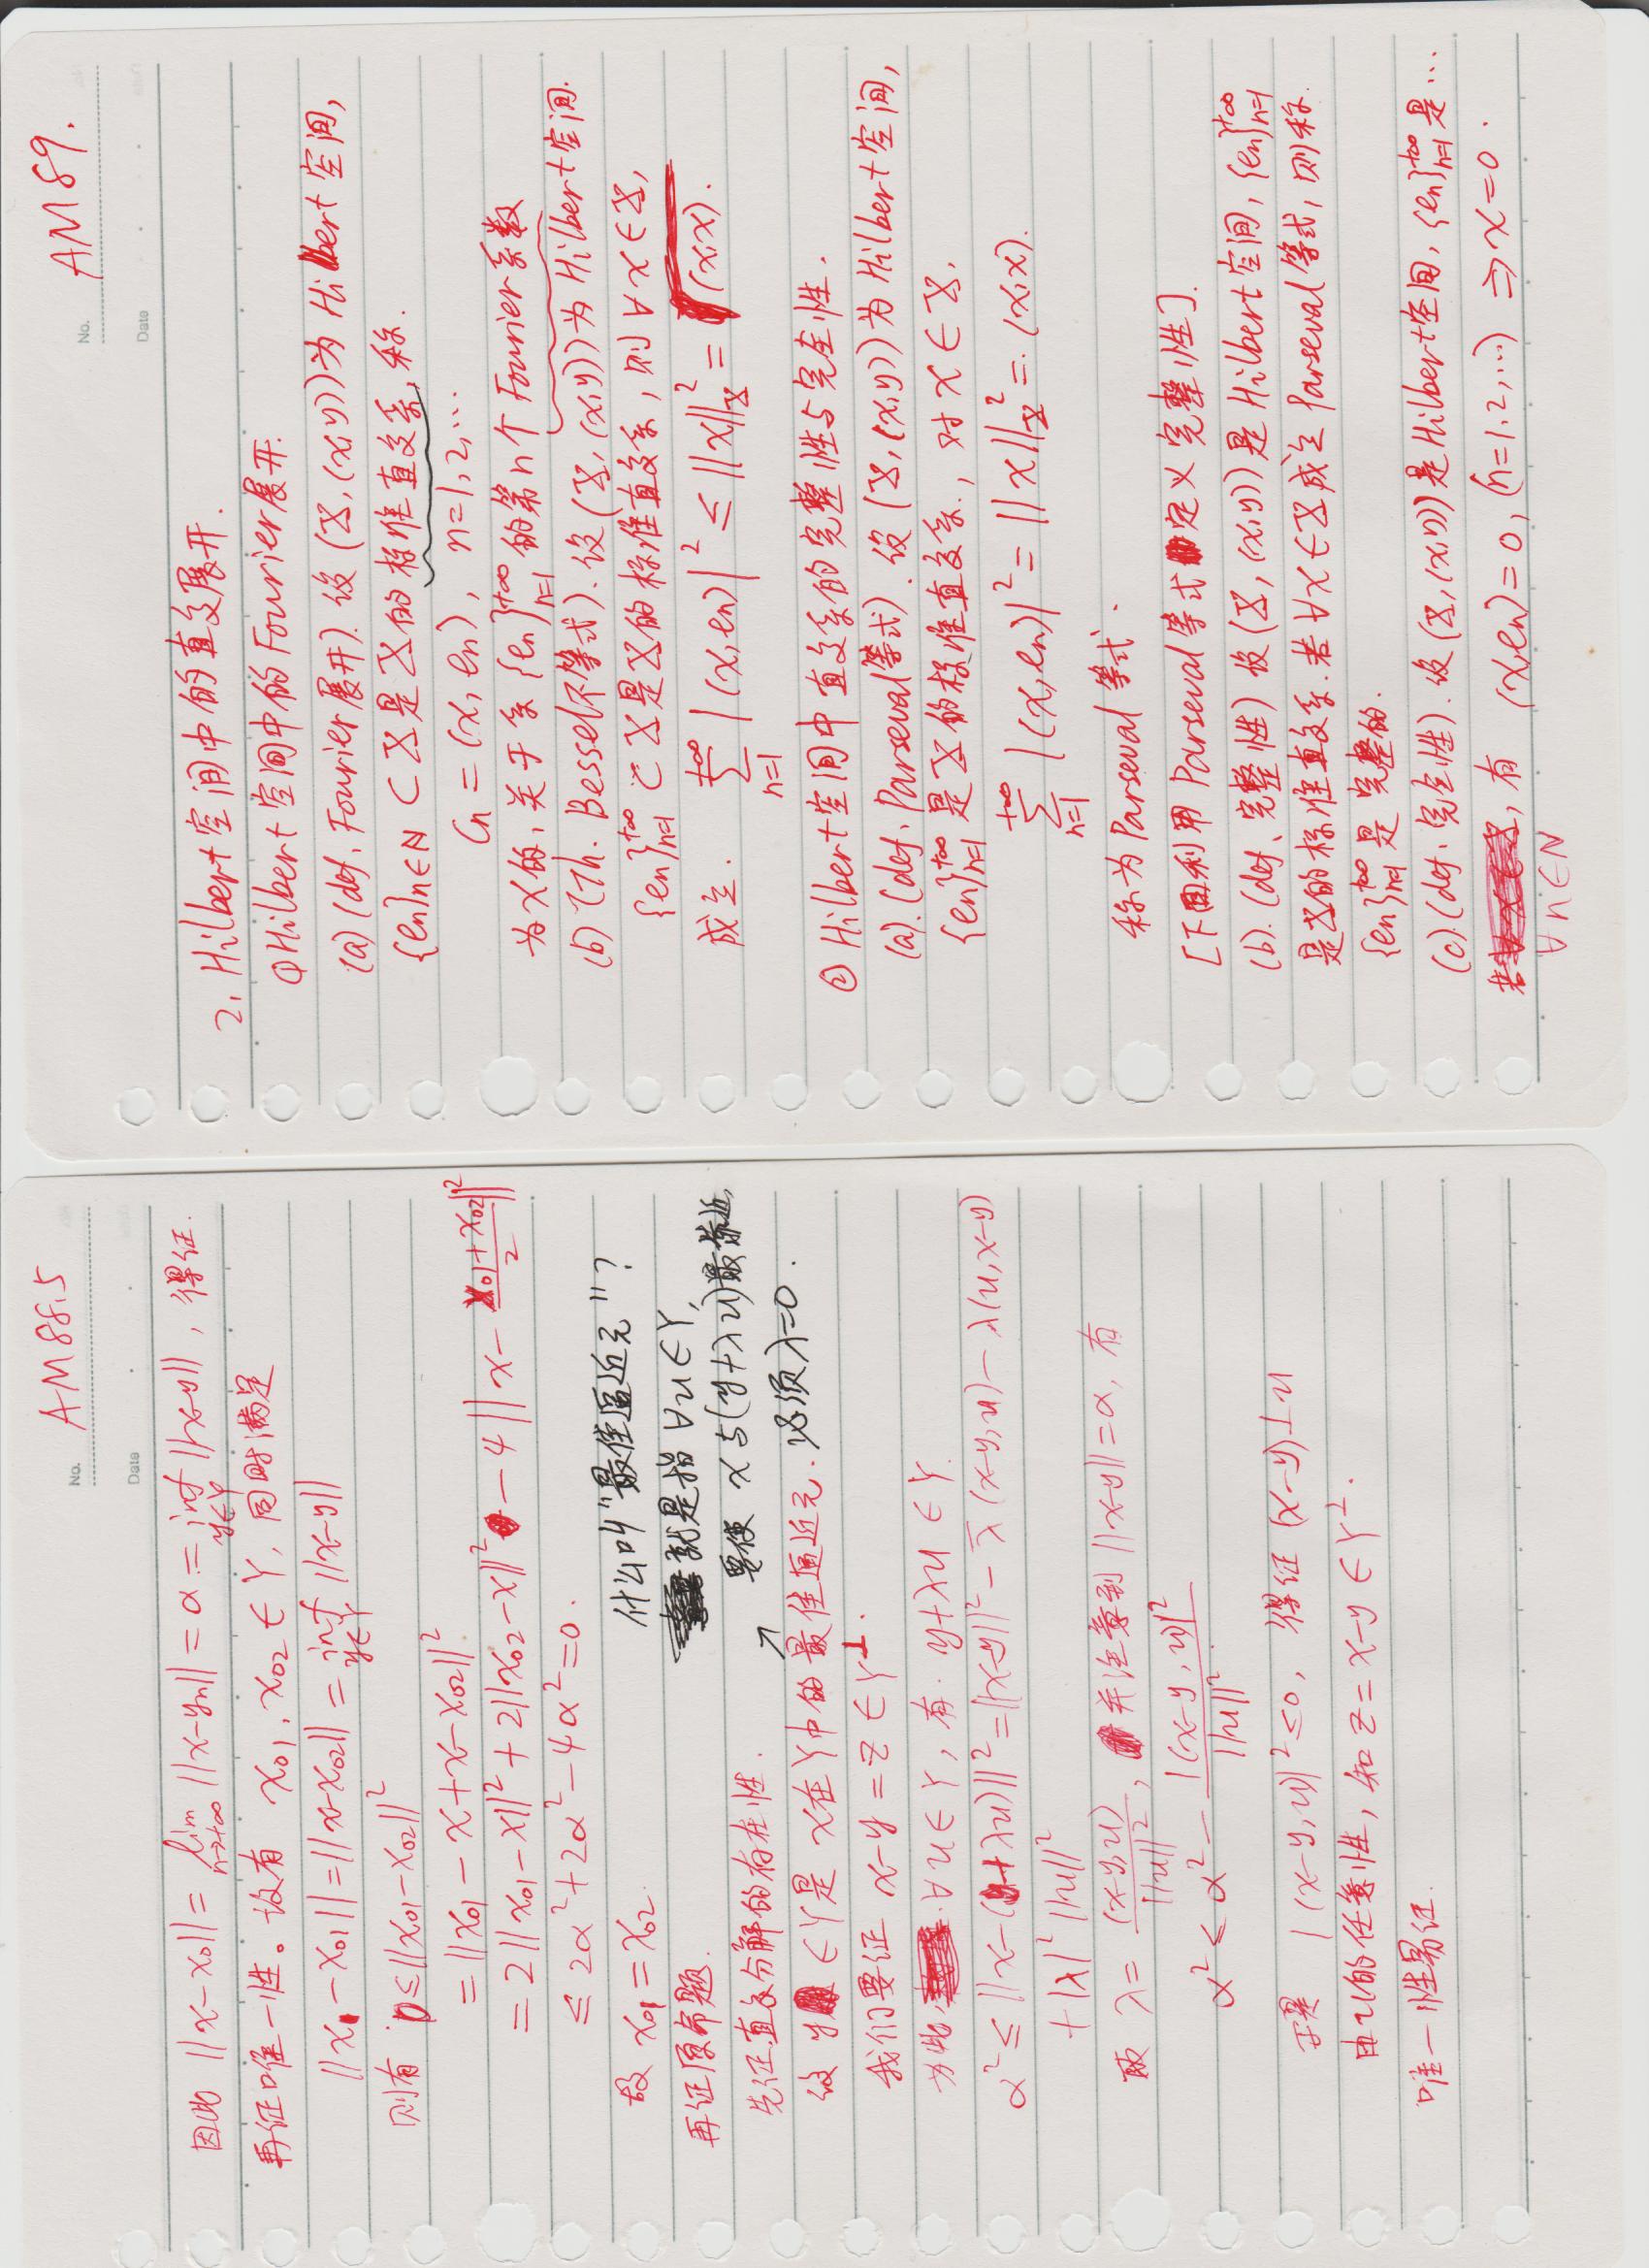 No. AM88.5
Date
因此 ||x-x₀|| = lim_{n→+∞} ||x-yₙ|| = α = inf_{y∈Y} ||x-y||, 得证.
再证唯一性。设有 x₀₁, x₀₂ ∈ Y, 同时满足
||x-x₀₁|| = ||x-x₀₂|| = inf_{y∈Y} ||x-y||
则有 0 ≤ ||x₀₁-x₀₂||²
= ||x₀₁-x+x-x₀₂||²
= 2||x₀₁-x||² + 2||x₀₂-x||² - 4||x - (x₀₁+x₀₂)/2||²
≤ 2α²+2α²-4α²=0.
故 x₀₁ = x₀₂.
再证原命题.
先证直交分解的存在性.
设 y ∈ Y是 x在Y中的最佳逼近元.
什么叫"最佳逼近元"?
就是指 ∀u∈Y,
要使 x与(y+λu)最靠近,
↗ 必须λ=0.
我们要证 x-y = z ∈ Y⊥.
为此, ∀u∈Y, 有. y+λu ∈ Y.
α² ≤ ||x-(y+λu)||² = ||x-y||² - λ̄(x-y,u) - λ(u,x-y)
+ |λ|² ||u||²
取 λ = (x-y,u)/||u||², 并注意到 ||x-y||=α, 有
α² ≤ α² - |(x-y,u)|²/||u||².
于是 |(x-y,u)|² ≤ 0, 得证 (x-y)⊥u
由u的任意性, 知 z = x-y ∈ Y⊥.
唯一性易证.
No. AM89.
Date
2. Hilbert空间中的直交展开.
①Hilbert空间中的Fourier展开.
(a) (def. Fourier展开). 设 (X, (x,y))为 Hilbert 空间,
{eₙ}n∈N ⊂ X是X的标准直交系, 称.
Cₙ = (x, eₙ), n=1,2,…
为x的, 关于系 {eₙ}_{n=1}^{+∞} 的第n个Fourier系数
(b) (Th. Bessel不等式). 设 (X, (x,y))为Hilbert空间.
{eₙ}_{n=1}^{+∞} ⊂ X是X的标准直交系, 则 ∀x∈X,
成立. ∑_{n=1}^{+∞} |(x,eₙ)|² ≤ ||x||²_X = (x,x).
② Hilbert空间中直交系的完整性与完全性.
(a). (def. Parseval等式). 设 (X, (x,y))为Hilbert空间,
{eₙ}_{n=1}^{+∞} 是X的标准直交系., 对 x∈X,
∑_{n=1}^{+∞} |(x,eₙ)|² = ||x||²_X = (x,x).
称为Parseval等式.
[下面利用Parseval等式定义完整性].
(b). (def. 完整性) 设 (X, (x,y))是Hilbert空间, {eₙ}_{n=1}^{+∞}
是X的标准直交系. 若 ∀x∈X成立Parseval等式, 则称.
{eₙ}_{n=1}^{+∞} 是完整的.
(c). (def. 完全性). 设 (X, (x,y))是Hilbert空间, {eₙ}_{n=1}^{+∞} 是…
若, 有 (x,eₙ)=0, (n=1,2,…) ⇒ x=0.
∀n∈N